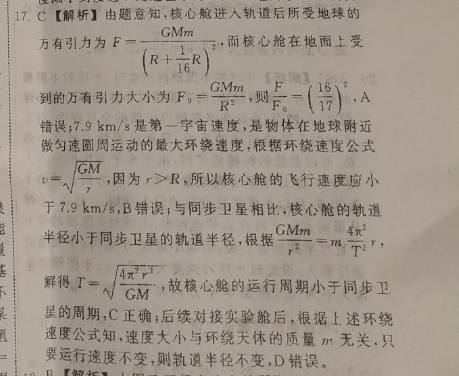 17. C 【解析】由题意知,核心舱进入轨道后所受地球的
万有引力为 F = GMm / (R + 1/16 R)²,而核心舱在地面上受
到的万有引力大小为 F₀ = GMm / R²,则 F/F₀ = (16/17)²,A
错误;7.9 km/s 是第一宇宙速度,是物体在地球附近
做匀速圆周运动的最大环绕速度,根据环绕速度公式
v = √(GM/r),因为 r>R,所以核心舱的飞行速度应小
于 7.9 km/s,B错误;与同步卫星相比,核心舱的轨道
半径小于同步卫星的轨道半径,根据 GMm/r² = m 4π²/T² r,
解得 T = √(4π²r³/GM),故核心舱的运行周期小于同步卫
星的周期,C 正确;后续对接实验舱后,根据上述环绕
速度公式知,速度大小与环绕天体的质量 m 无关,只
要运行速度不变,则轨道半径不变,D 错误。